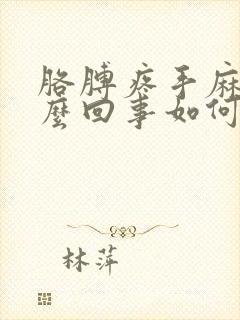 胳膊疼手麻
麼回事如何
林萍